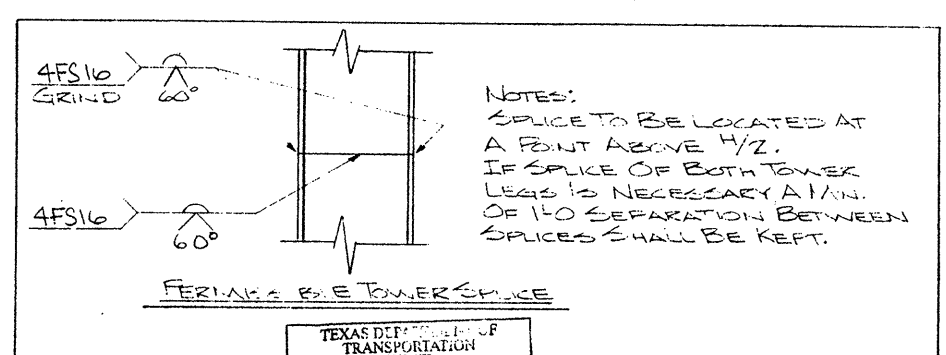 4FS16
GRIND
60°
4FS16
60°
NOTES:
SPLICE TO BE LOCATED AT
A POINT ABOVE H/2.
IF SPLICE OF BOTH TOWER
LEGS IS NECESSARY A MIN.
OF 1'-0 SEPARATION BETWEEN
SPLICES SHALL BE KEPT.
TOWER SPLICE
TEXAS DEPARTMENT OF
TRANSPORTATION